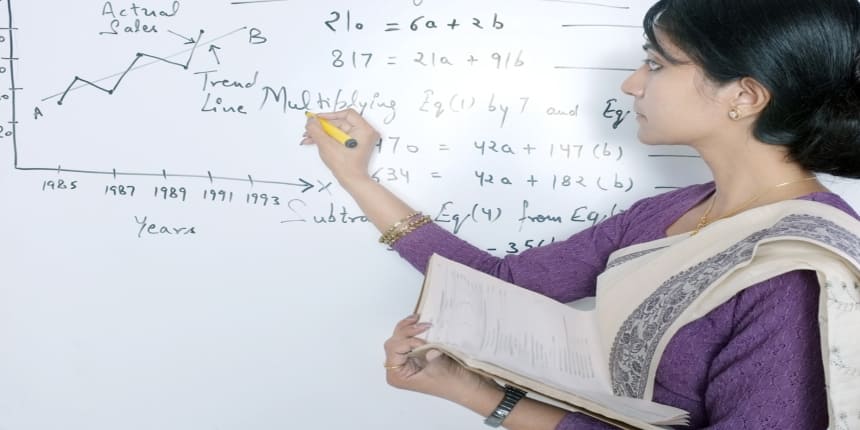 Actual
Sales
B
Trend
Line
A
20
1985 1987 1989 1991 1993 X
Years
210 = 6a + 2b
817 = 21a + 91b
Multiplying Eq(1) by 7 and Eq
470 = 42a + 147(b)
634 = 42a + 182(b)
Eq(4) from Eq(
- 35(